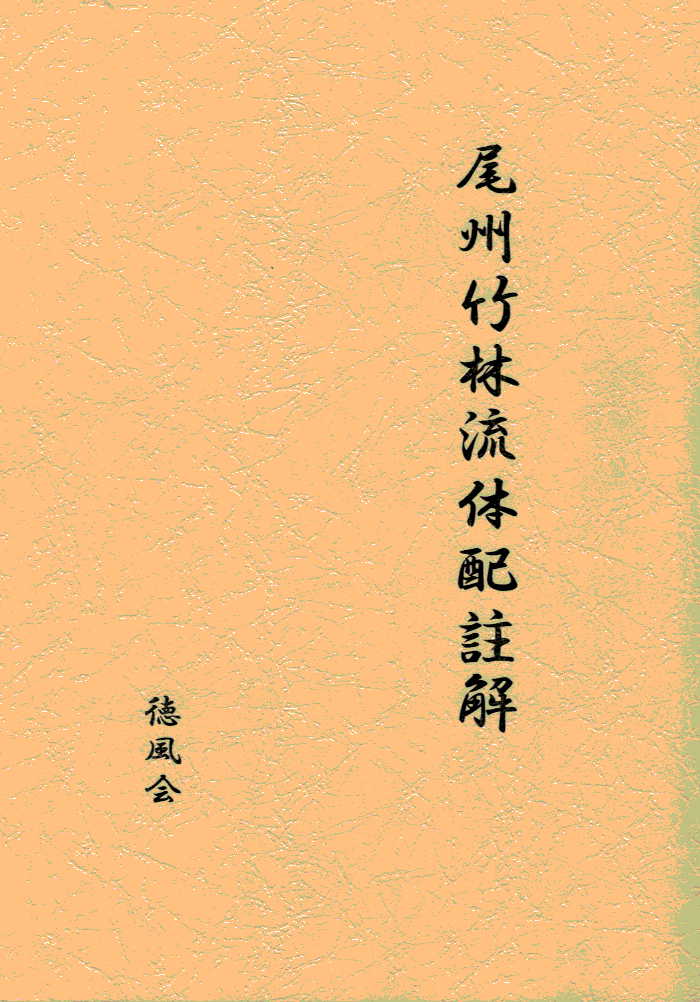 尾州竹林流体配註解
徳風会